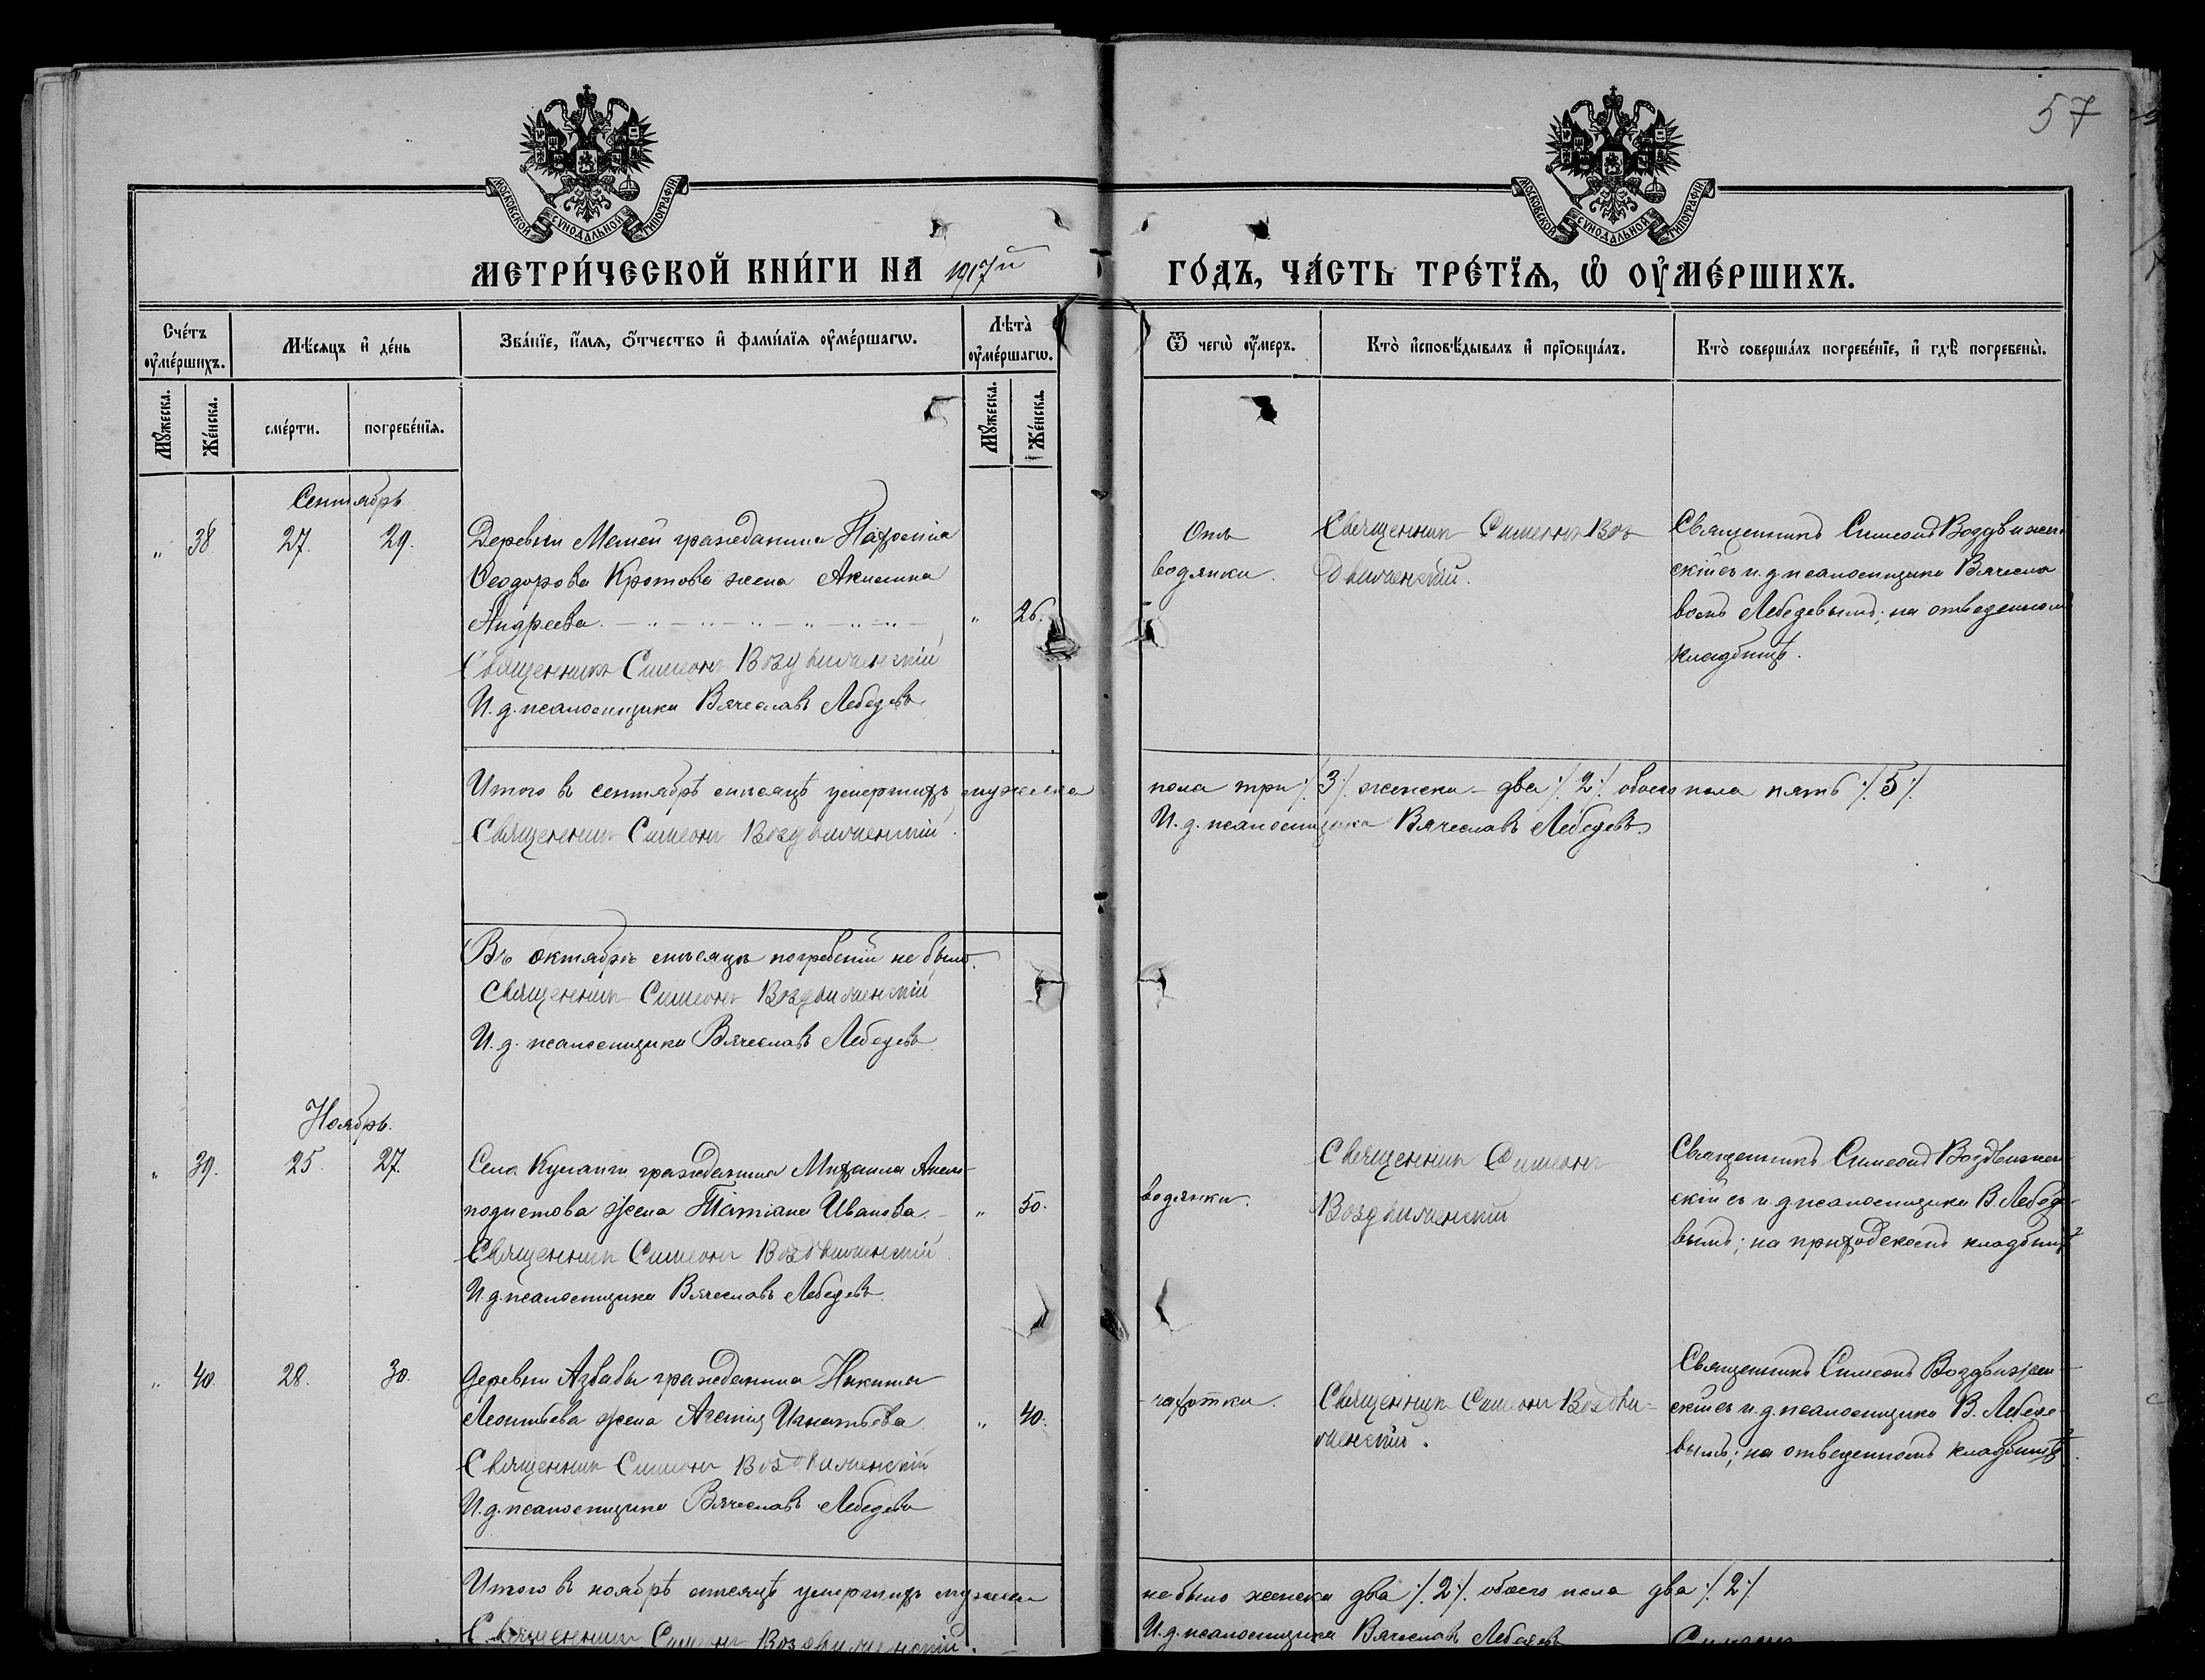 57
МОСКОВСКОЙ СѴНОДАЛЬНОЙ ТИПОГРАФІИ
МОСКОВСКОЙ СѴНОДАЛЬНОЙ ТИПОГРАФІИ
МЕТРИ́ЧЕСКОЙ КНИ́ГИ НА 1917й
ГО́ДЪ, ЧА́СТЬ ТРЕ́ТЇѦ, Ѡ҆ ОУ҆МЕ́РШИХЪ.
Сче́тъ оу҆ме́ршихъ.
Мꙋ́жеска.
Же́нска.
Мѣ́сѧцъ и҆ де́нь
сме́рти.
погребе́нїѧ.
Зва́нїе, и҆́мѧ, ѻ҆́тчество и҆ фами́лїѧ оу҆ме́ршагѡ.
Лѣ̀та оу҆ме́ршагѡ.
Мꙋ́жеска.
Же́нска.
Ѿ чегѡ̀ оу҆́меръ.
Кто̀ и҆сповѣ́дывалъ и҆ прїѡбща́лъ.
Кто̀ соверша́лъ погребе́нїе, и҆ гдѣ̀ погребены̀.
Сентябрь
" 38. 27. 29.
Деревни Мемей гражданина Пафонія
Ѳеодорова Кротова жена Акилина
Андреева. " 26.
Священникъ Симеонъ Воздвиженскій
И. д. псаломщика Вячеславъ Лебедевъ.
Отъ
водянки.
Священникъ Симеонъ Воз
движенскій.
Священникъ Симеонъ Воздвижен
скій съ и. д. псаломщика Вячесла
вомъ Лебедевымъ; на отведенном
кладбищѣ.
Итого въ сентябрѣ мѣсяцѣ умершихъ мужеска
пола три ./3./. женска - два ./2./. обоего пола пять ./5./.
Священникъ Симеонъ Воздвиженскій.
И. д. псаломщика Вячеславъ Лебедевъ
Въ октябрѣ мѣсяцѣ погребеній не было.
Священникъ Симеонъ Воздвиженскій
И. д. псаломщика Вячеславъ Лебедевъ
Ноябрь.
" 39. 25. 27.
Села Куланги гражданина Михаила Анем-
подистова жена Татіана Иванова. - " 50.
Священникъ Симеонъ Воздвиженскій
И. д. псаломщика Вячеславъ Лебедевъ.
водянки.
Священникъ Симеонъ
Воздвиженскій
Священникъ Симеонъ Воздвижен
скій съ и. д. псаломщика В. Лебеде-
вымъ; на приходскомъ кладбищѣ
" 40. 28. 30.
Деревни Азбабы гражданина Никиты
Леонтьева жена Игнатьева. " 40.
Священникъ Симеонъ Воздвиженскій
И. д. псаломщика Вячеславъ Лебедевъ
чахотки.
Священникъ Симеонъ Воздви-
женскій.
Священникъ Симеонъ Воздвижен-
скій съ и. д. псаломщика В. Лебеде-
вымъ; на отведенномъ кладбищѣ.
Итого въ ноябрѣ мѣсяцѣ умершихъ мужска
не было женска два ./2./. обоего пола два ./2./.
Священникъ Симеонъ Воздвиженскій.
И. д. псаломщика Вячеславъ Лебедевъ